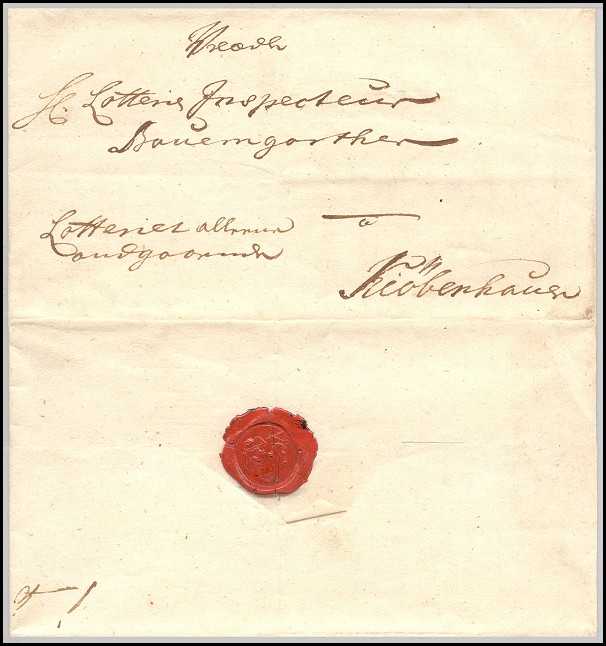 H. Lotterie Inspecteur
Bauemgarther
Lotteriet allene
à
angaaende
Kiöbenhauen